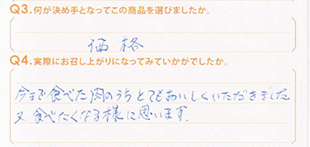 Q3.何が決め手となってこの商品を選びましたか。
価格
Q4.実際にお召し上がりになってみていかがでしたか。
今まで食べた肉のうちとてもおいしくいただきました
又食べたくなる様に思います.